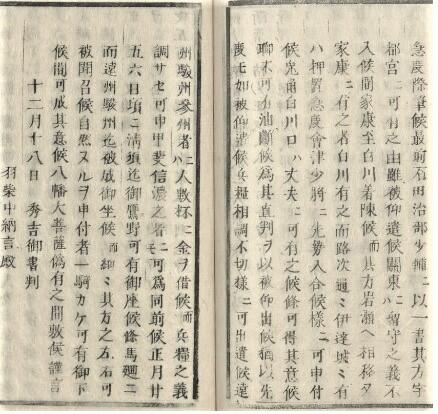 急度染筆候最前石田治部少輔ニ以一書其方宇
都宮ニ可有之由雖被仰遣候關東ニ留守之義不
入候間家康至白川着陳候而其方岩瀬へ相移々
家康ニ有之者白川有之而路次通ニ伊達城ニ有
ハ押置急度會津少將ニ先勢入合候樣ニ可申付
候兎角白川口ハ丈夫ニ可有之候條可得其意候
聊不可由油斷候為其直判ヲ以被仰出候猶以先
度モ如被仰遣候兵粮相調不切樣ニ可出遣候遠
州駿州參州者ニ人數杯ニ金ヲ借候而兵粮之義
調サセ可申甲斐信濃之者モ可為同前候正月廿
五六日頃ニ淸須迄御鷹野可有御座候條馬廻ニ
而遠州駿州迄被成御坐候而細ミ其方之左右可
被聞召候自然ヌルヲ申付者一騎カケ可有御下
候間可成其意候八幡大菩薩僞有之間敷候謹言
十二月十八日 秀吉御書判
羽柴中納言殿